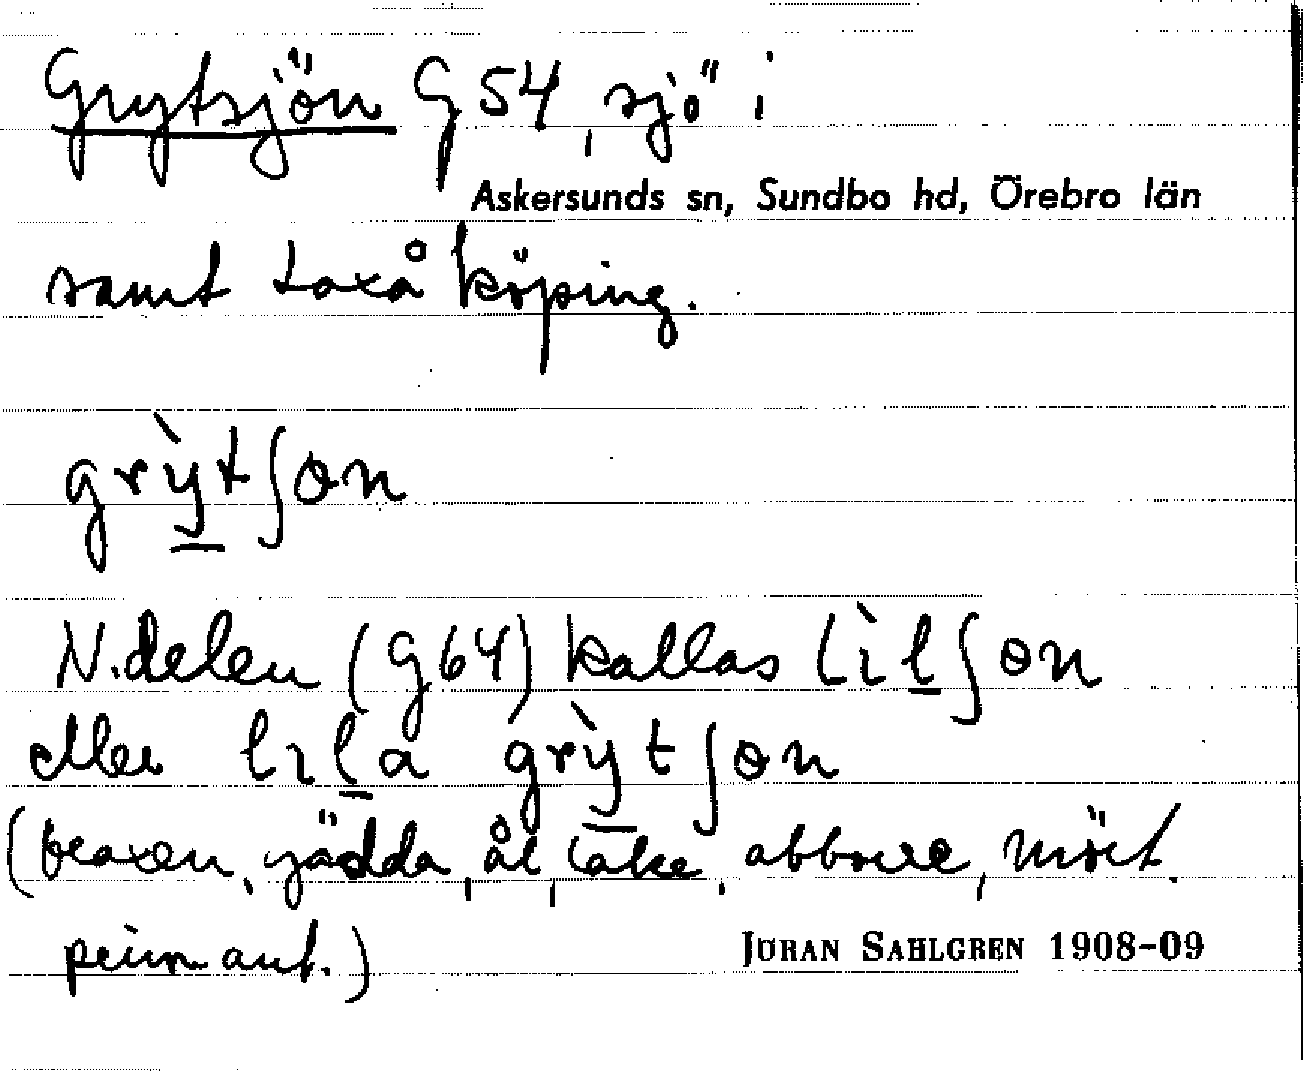 Grytsjön G 54, sjö i
Askersunds sn, Sundbo hd, Örebro län
samt Laxå köping.
grỳtʃɵn
N. delen (G 64) kallas lìlʃɵn
eller lɩla grỳtʃɵn
(braxen, gädda, ål, lake, abborre, mört.
prim ant.)
JÖRAN SAHLGREN 1908-09